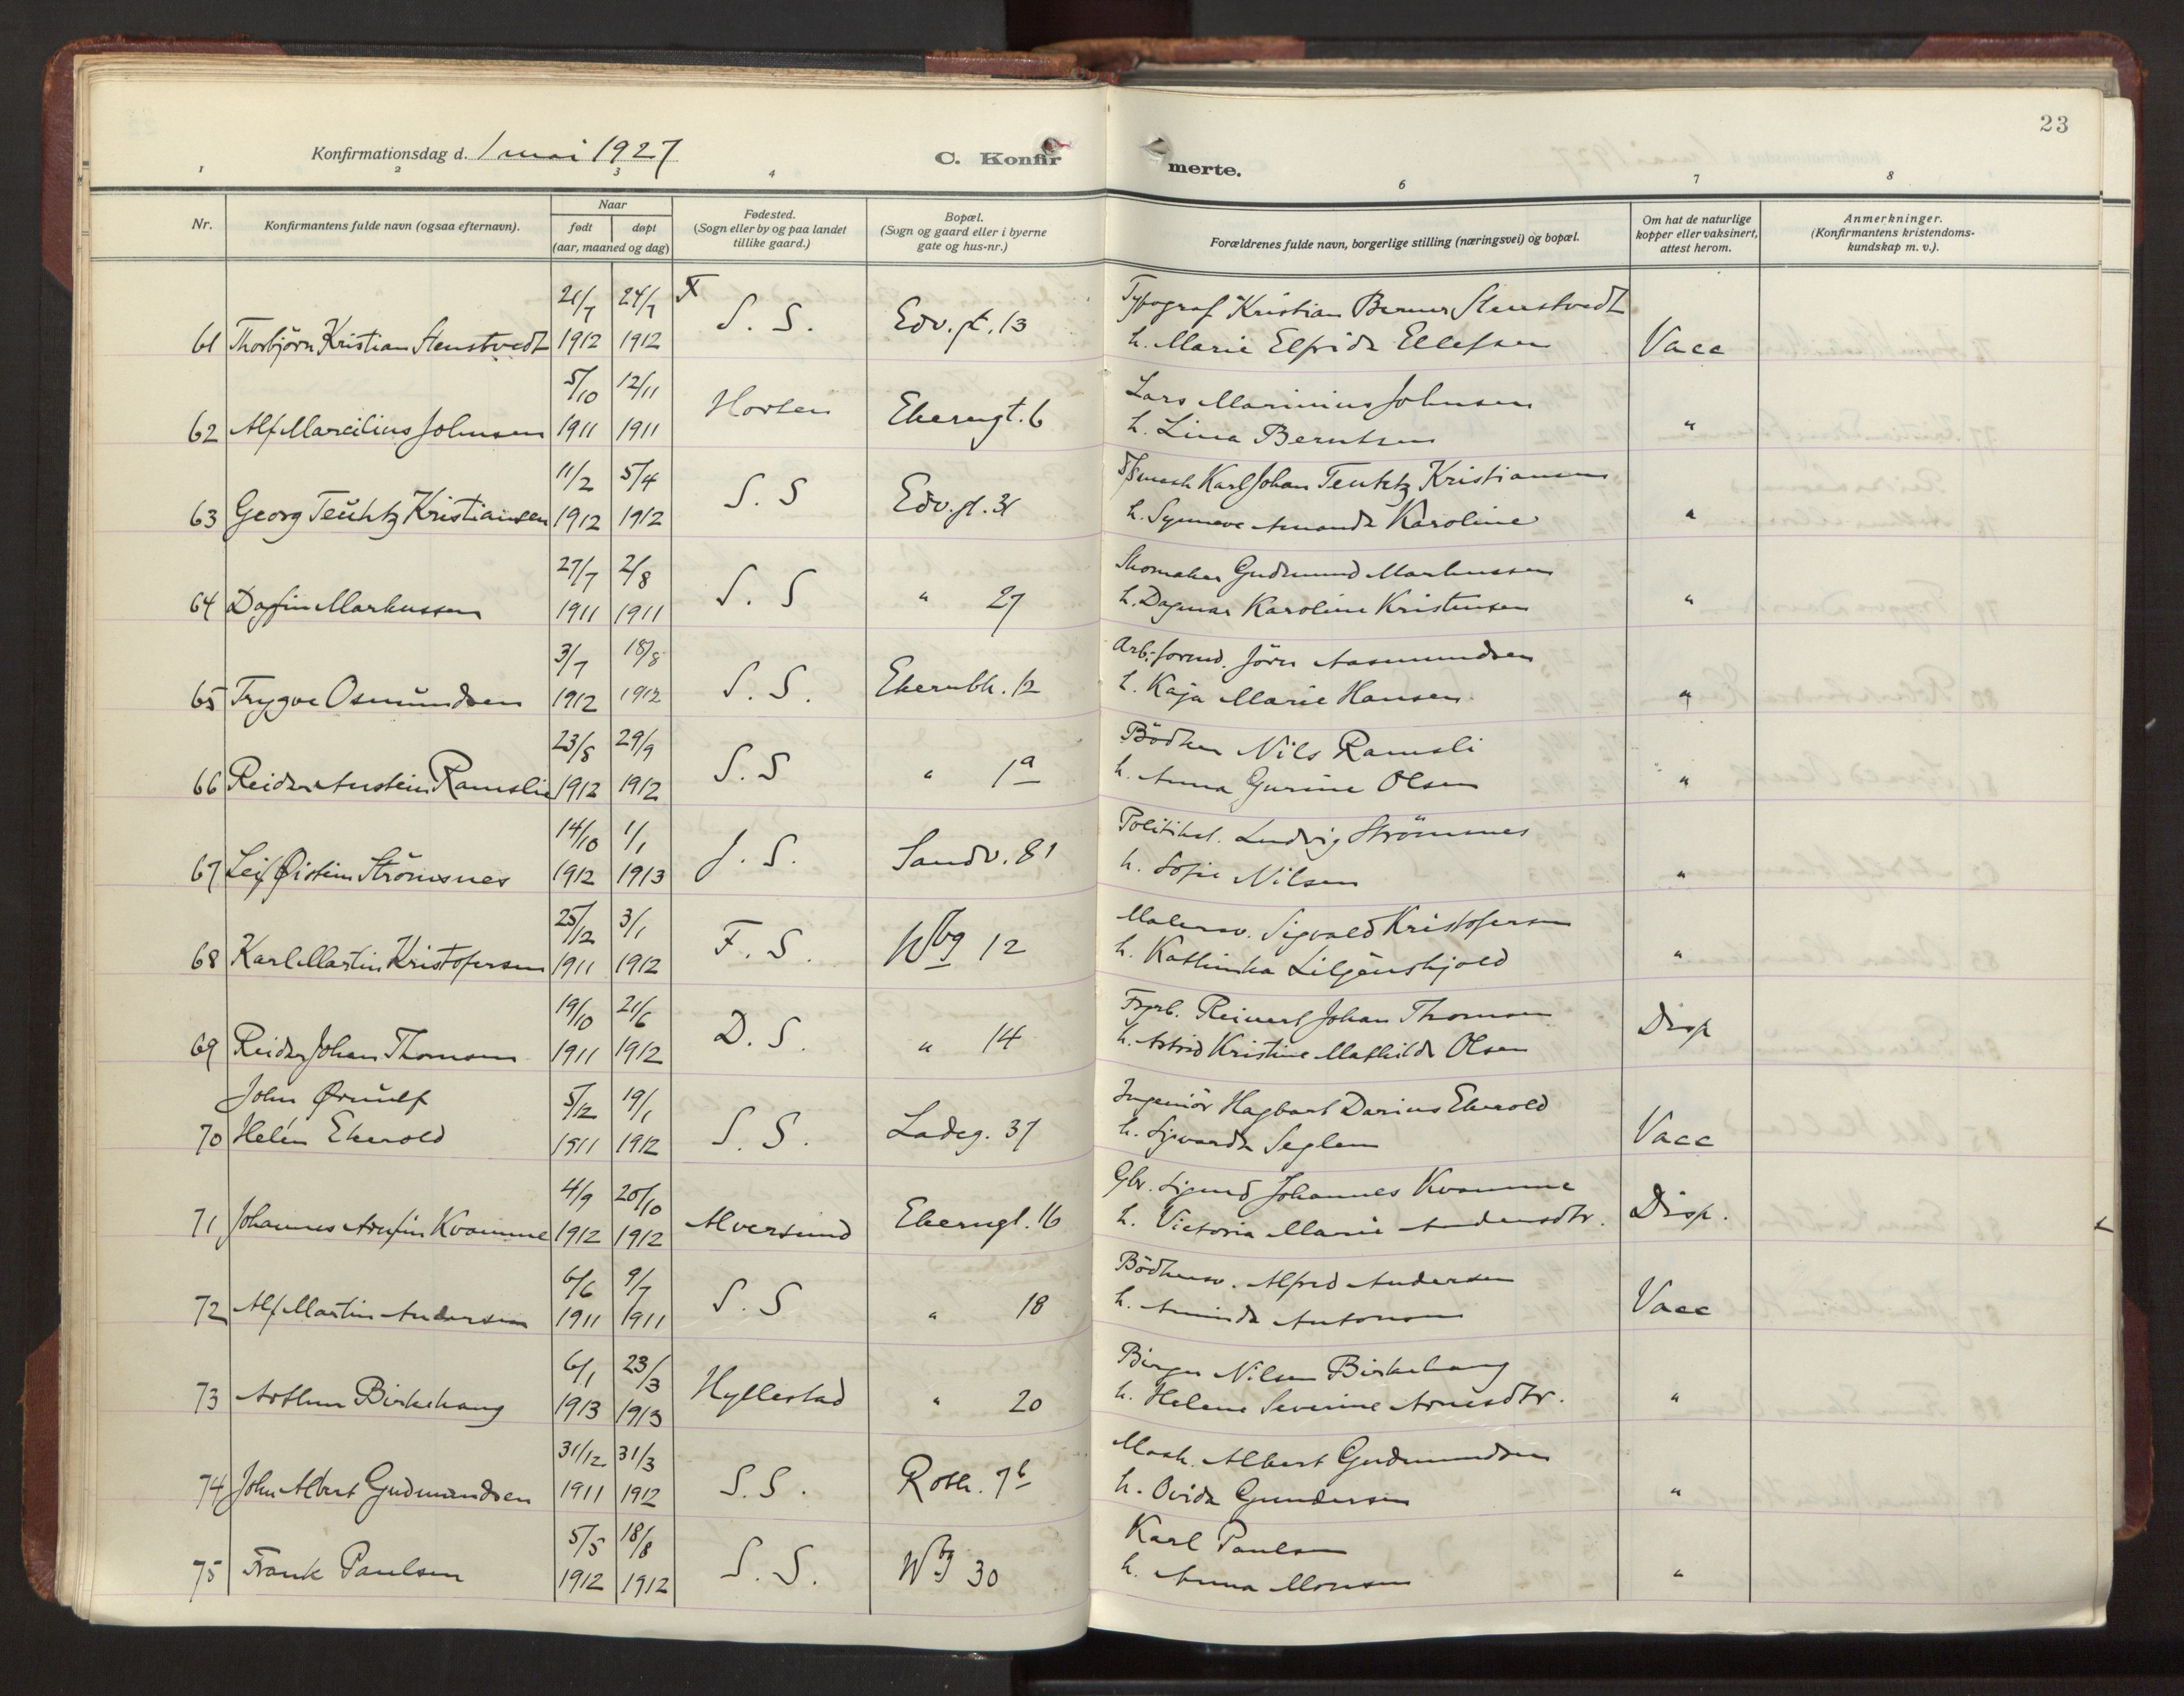 23
Konfirmationsdag d. 1 mai 1927
C. Konfirmerte.
1 2 3 4 6 7 8
Nr.
Konfirmantens fulde navn (ogsaa efternavn).
Naar
født døpt
(aar, maaned og dag)
Fødested.
(Sogn eller by og paa landet
tillike gaard.)
Bopæl.
(Sogn og gaard eller i byerne
gate og hus-nr.)
Forældrenes fulde navn, borgerlige stilling (næringsvei) og bopæl.
Om hat de naturlige
kopper eller vaksinert,
attest herom.
Anmerkninger.
(Konfirmantens kristendoms-
kundskap m. v.).
21/7 24/7 X S. S. Edv. gt. 13 Typograf Kristian Berner Stenstvedt
61 Thorbjörn Kristian Stenstvedt 1912 1912 h. Marie Elfrida Ellefsen Vacc
5/10 12/11 Horten Ekerngt. 6 Lars Marinius Johnsen
62 Alf Marcilius Johnsen 1911 1911 h. Lina Berntsen "
11/2 5/4 S. S Edv. gt. 31 Karl Johan Teuhtz Kristiansen
63 Georg Teuhtz Kristiansen 1912 1912 h. Synneve Amanda Karoline "
27/7 2/8 S. S " 27 Skomaker Gudmund Markussen
64 Dagfin Markussen 1911 1911 h. Dagmar Karoline Kristensen "
3/7 18/8 S. S. Ekernbk. 12 Arb.-formd. Jörn Aasmundsen
65 Trygve Osmundsen 1912 1912 h. Kaja Marie Hansen "
23/8 29/9 S. S " 1a Bödker Nils Ramsli
66 Reidar Austein Ramslie 1912 1912 h. Anna Gurine Olsen "
14/10 1/1 J. S. Sandv. 81 Politikst. Ludvig Strömmes
67 Leif Øistein Strömsnes 1912 1913 h. Sofie Nilsen "
25/12 3/1 F. S. Wbg 12 Malersv. Sigvald Kristofersen
68 Karl Martin Kristofersen 1911 1912 h. Kathinka Liljenskjold "
19/10 21/6 D. S. " 14 Reinert Johan Thomsen
69 Reidar Johan Thomsen 1911 1912 h. Astrid Kristine Mathilde Olsen Disp
John Ørnulf 5/12 19/1 S. S. Ladeg. 37 Ingeniör Hagbart Darius Ekerold
70 Helén Ekerold 1911 1912 h. Sigvarda Seglem Vacc
4/9 20/10 Alversund Ekerngt. 16 Gbr. Sigurd Johannes Kvamme
71 Johannes Arnfin Kvamme 1912 1912 h. Victoria Marie Andersdtr. Disp.
6/6 9/7 S. S " 18 Bödkersv. Alfred Andersen
72 Alf Martin Andersen 1911 1911 h. Aminda Antonsen Vacc
6/1 23/3 Hyllestad " 20 Birger Nilsen Birkehaug
73 Arthur Birkehaug 1913 1913 h. Helene Severine Arnesdtr. "
31/12 31/3 S. S. Roth. 7b Mask. Albert Gudmundsen
74 John Albert Gudmundsen 1911 1912 h. Ovida Gundersen "
5/5 18/8 S. S. Wbg 30 Karl Paulsen
75 Frank Paulsen 1912 1912 h. Anna Monsen "